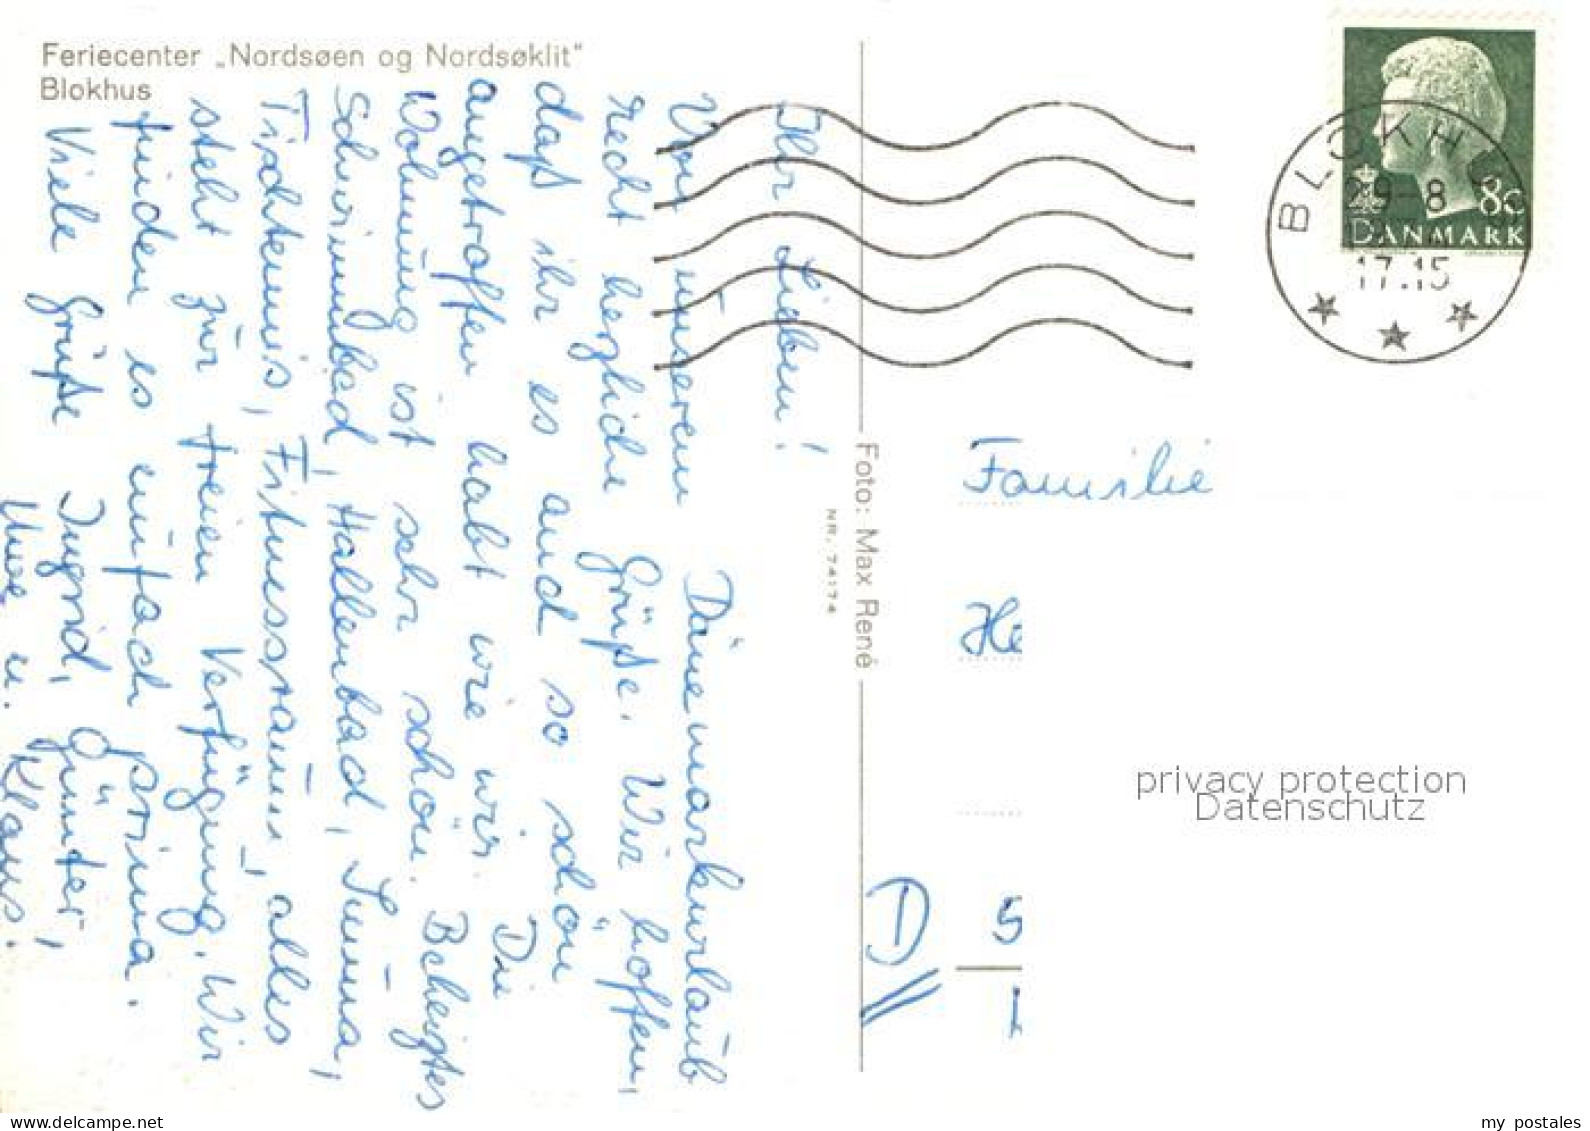 Feriecenter „Nordsøen og Nordsøklit"
Blokhus
Ihr Lieben!
Von unserem Dänemarkurlaub
recht herzliche Grüße. Wir hoffen,
daß ihr es auch so schön
angetroffen habt wie wir. Die
Wohnung ist sehr schön. Beheiztes
Schwimmbad, Hallenbad, Sauna,
Tischtennis, Fitnessraum, alles
steht zur freien Verfügung. Wir
finden es einfach prima.
Viele Grüße Ingrid, Günter,
Uwe u. Klaus.
Foto: Max René
NR. 74174
BLOKH
29-8
17.15
80
DANMARK
Familie
He
D
5
privacy protection
Datenschutz
my postales